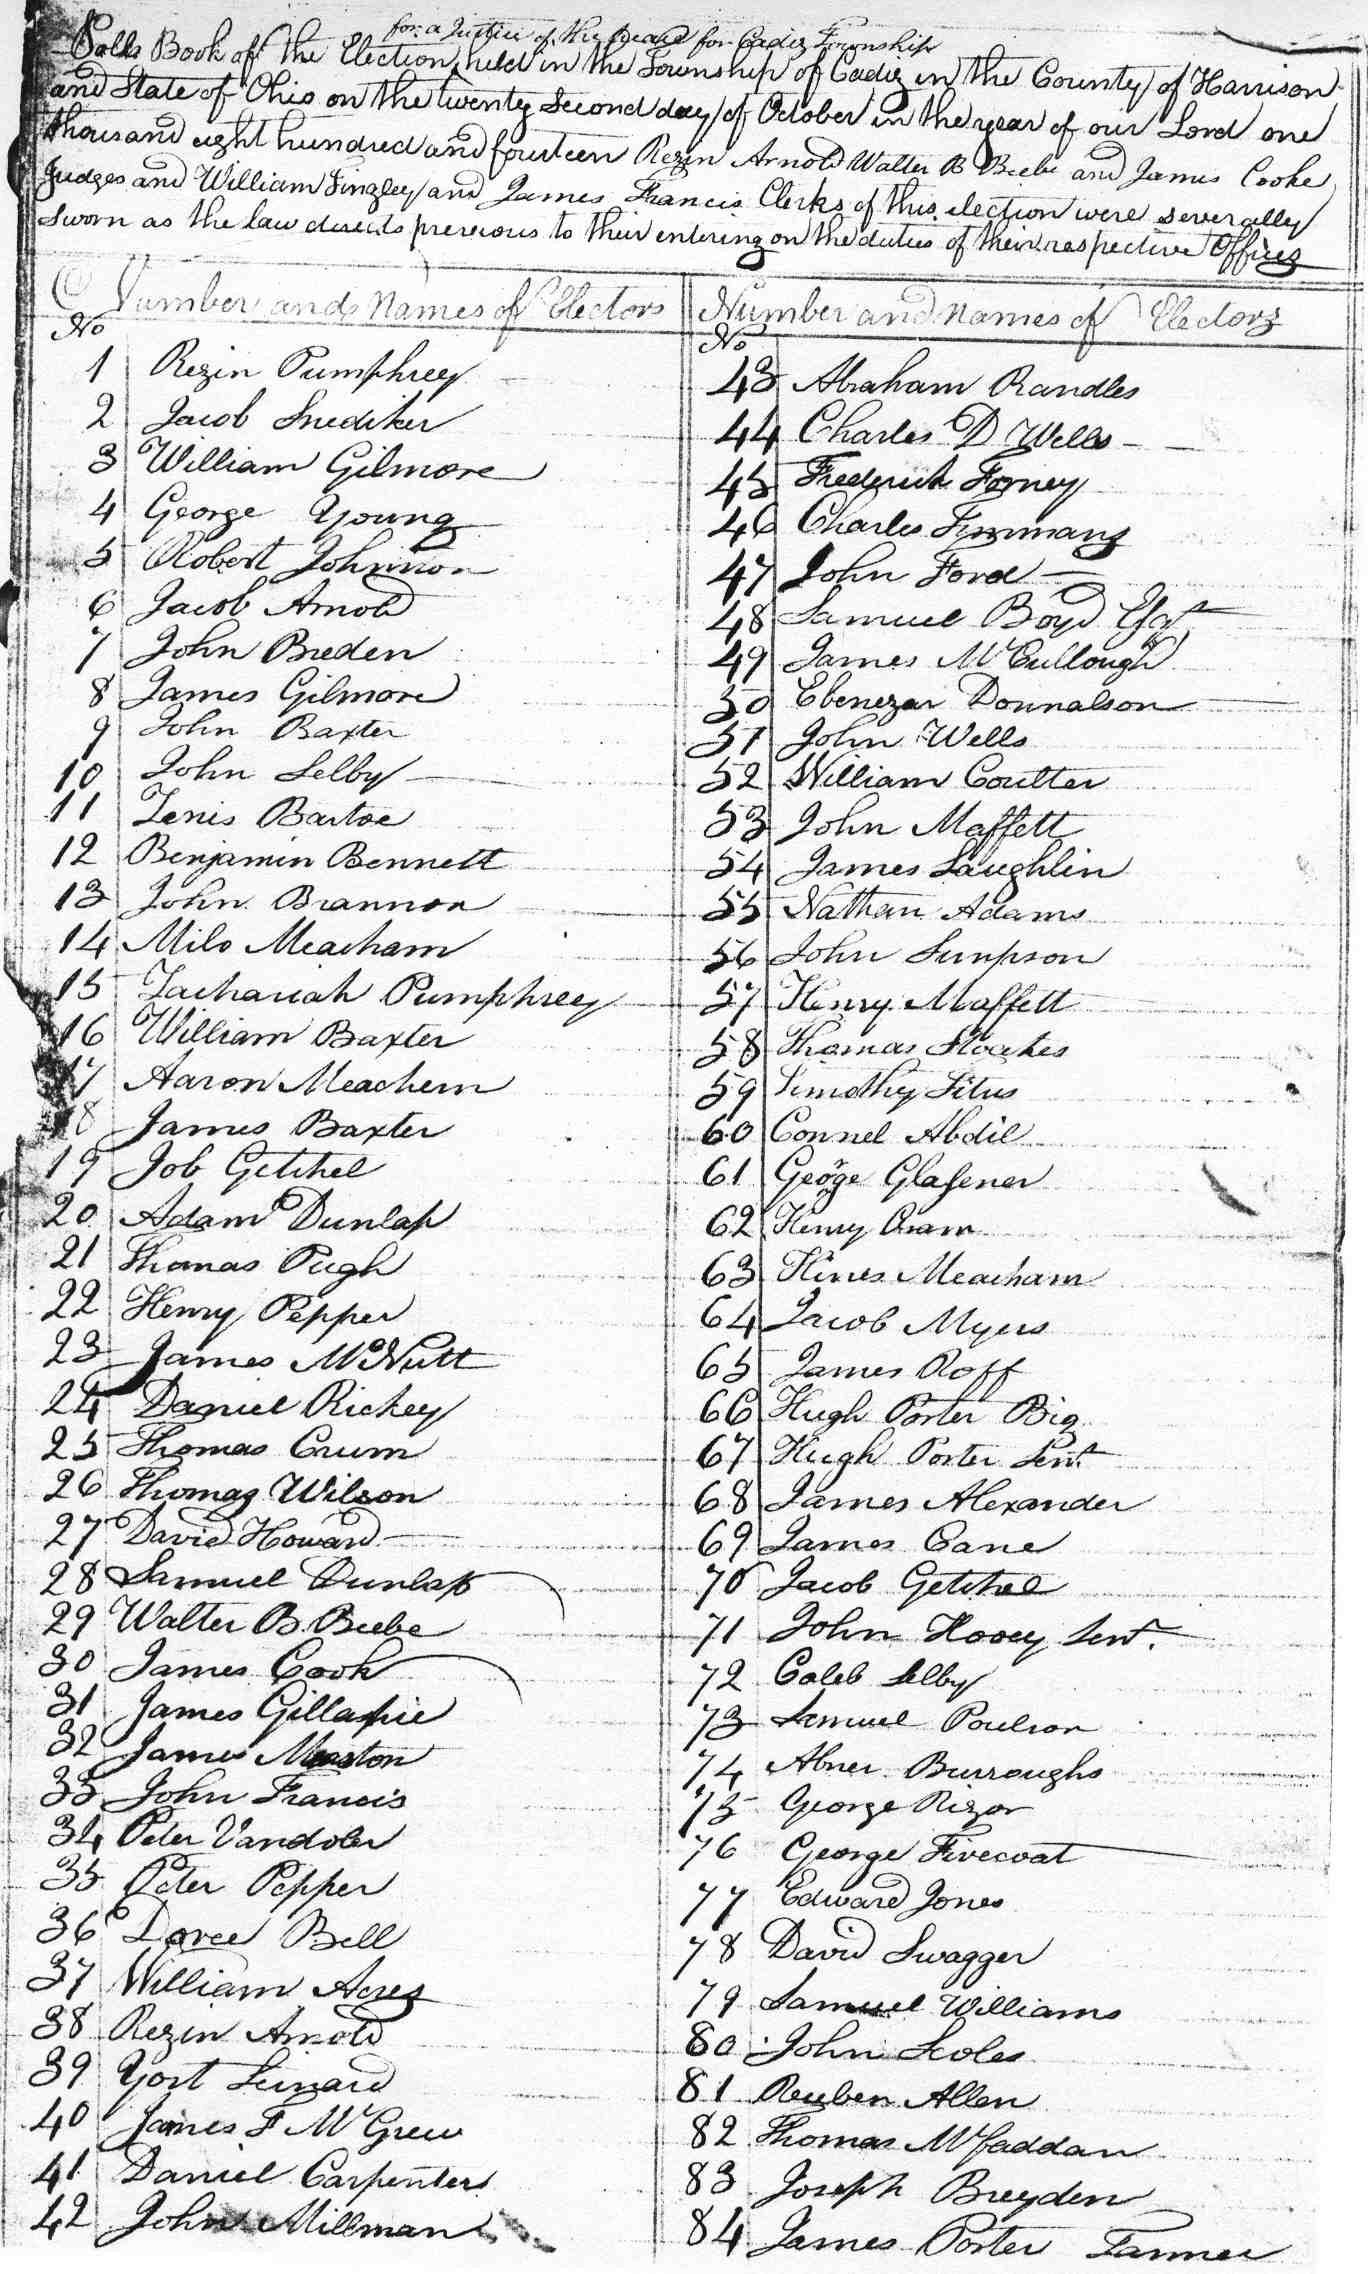 for a Justice of the Peace for Cadiz Township
Polls Book of the Election held in the Township of Cadiz in the County of Harrison
and State of Ohio on the twenty Second day of October in the year of our Lord one
thousand eight hundred and fourteen Rezin Arnold Walter B Beebe and James Cooke
Judges and William Tingley and James Francis Clerks of this election were severally
Sworn as the law directs previous to their entering on the duties of their respective Offices
Number and Names of Electors
No
1 Rezin Pumphrey
2 Jacob Snediker
3 William Gilmore
4 George Young
5 Robert Johnson
6 Jacob Arnold
7 John Breden
8 James Gilmore
9 John Baxter
10 John Selby
11 Zenis Bartoe
12 Benjamin Bennett
13 John Brannon
14 Milo Meacham
15 Zachariah Pumphrey
16 William Baxter
17 Aaron Meachem
18 James Baxter
19 Job Getchel
20 Adam Dunlap
21 Thomas Pugh
22 Henry Pepper
23 James McNutt
24 Daniel Richey
25 Thomas Crum
26 Thomas Wilson
27 David Howard
28 Samuel Dunlap
29 Walter B. Beebe
30 James Cook
31 James Gillaspie
32 James
33 John Francis
34 Peter Vandoler
35 Peter Pepper
36 Bell
37 William Acres
38 Rezin Arnold
39 Yost
40 James F McGrew
41 Daniel Carpenter
42 John Millman
Number and Names of Electors
No
43 Abraham Randles
44 Charles D Wells
45 Frederick Forney
46 Charles Timmans
47 John Ford
48 Samuel Boyd Esqr
49 James McCullough
50 Ebenezar Donnalson
51 John Wells
52 William Coulter
53 John Maffett
54 James Laughlin
55 Nathan Adams
56 John Simpson
57 Henry Maffett
58 Thomas Stoakes
59 Timothy Titus
60 Connel Abdil
61 George Glasener
62 Henry Oram
63 Hines Meacham
64 Jacob Myers
65 James Roff
66 Hugh Porter Big
67 Hugh Porter Senr
68 James Alexander
69 James Cane
70 Jacob Getchel
71 John Hooey Senr.
72 Caleb Selby
73 Samuel Poulson
74 Abner Burroughs
75 George Rizor
76 George Fivecoat
77 Edward Jones
78 David Swagger
79 Samuel Williams
80 John Scoles
81 Reuben Allen
82 Thomas Mcfaddan
83 Joseph Breyden
84 James Porter Tanner